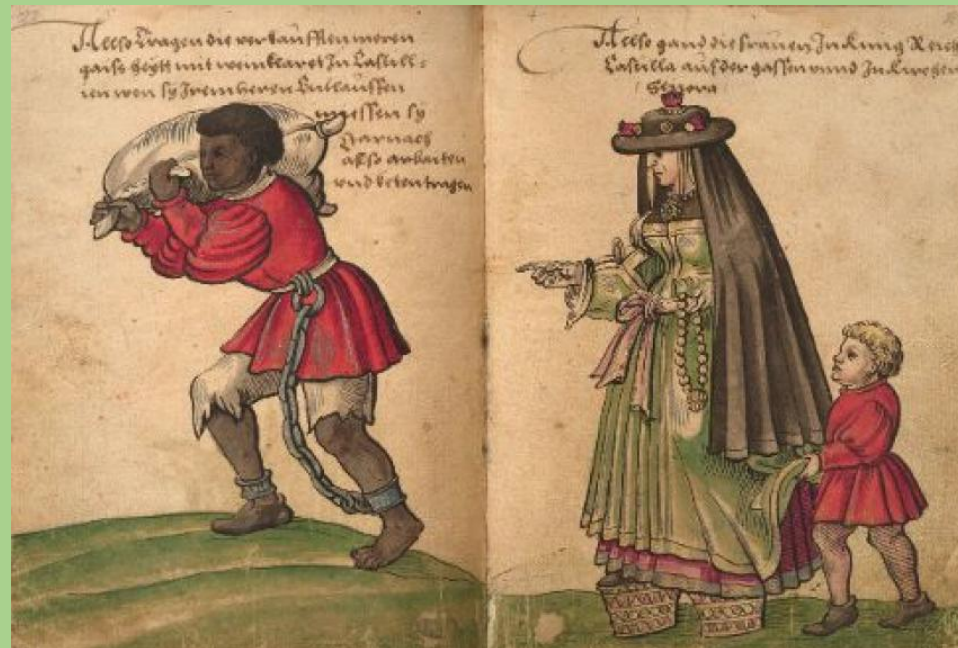 Allso tragen die verkaufften moren
gaiss heytt mit wein
wen sy irem heren Entlauffen
miessen sy
Darnach
allso arbaiten
und keten tragen
Allso gand die frauen In kunig Reich
Castilla auf der gassen unnd In kirchen